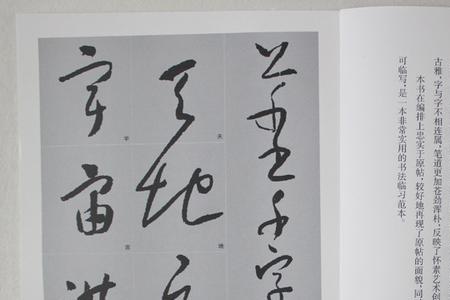 古雅,字与字不相连属,笔道更加苍劲浑朴,反映了怀素艺术创
本书在编排上忠实于原帖,较好地再现了原帖的面貌,同
可临写,是一本非常实用的书法临习范本。
千字
天地
天
地
宇宙洪
宇
宙